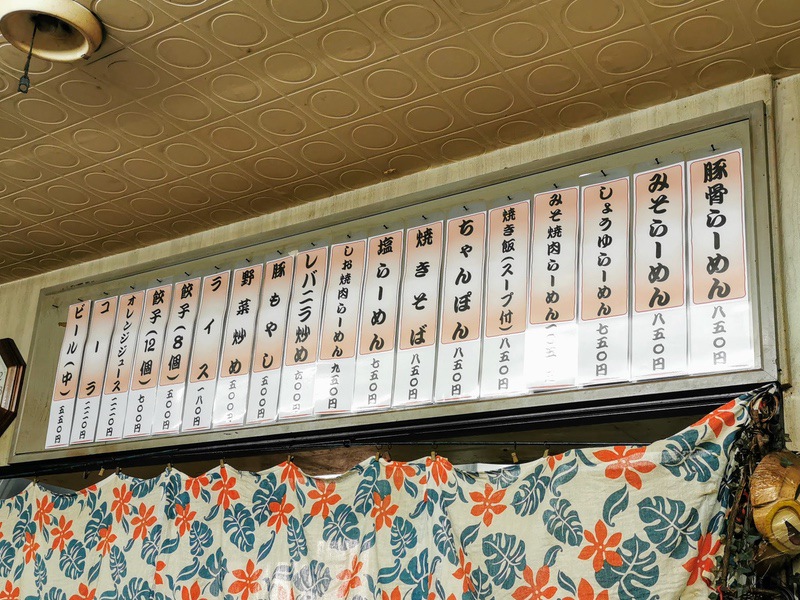 豚骨らーめん 八五〇円
みそらーめん 八五〇円
しょうゆらーめん 七五〇円
みそ焼肉らーめん
焼き飯(スープ付) 八五〇円
ちゃんぽん 八五〇円
焼きそば 八五〇円
塩らーめん 七五〇円
しお焼肉らーめん 九五〇円
レバニラ炒め 六〇〇円
豚もやし 五〇〇円
野菜炒め 五〇〇円
ライス 一八〇円
餃子(8個) 五〇〇円
餃子(12個) 七〇〇円
オレンジジュース 二二〇円
コーラ 二二〇円
ビール(中) 五五〇円